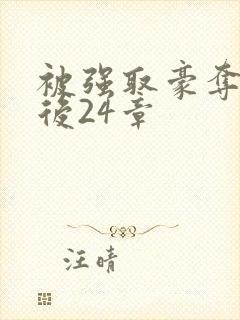 被强取豪夺
後24章
汪晴